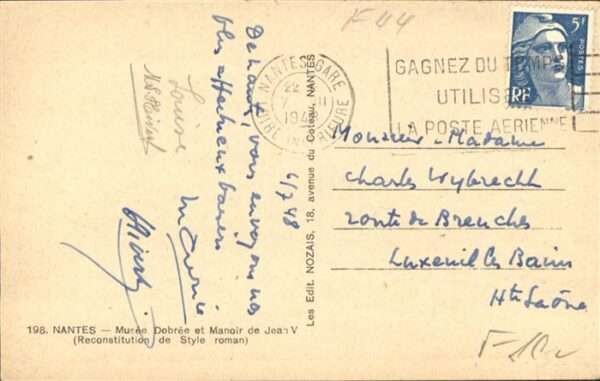 F 44
5F
POSTES
RF
NANTES GARE
LOIRE INFÉRIEURE
GAGNEZ DU TEMPS
UTILISEZ
LA POSTE AERIENNE
De Nantes, vous envoyons nos
plus affectueux baisers
Maurice
Louise
4/7 48
Monsieur - Madame
Charles Wybrecht
route de Breuches
Luxeuil les Bains
Hte Saône
Les Edit. NOZAIS, 18, avenue du Coteau, NANTES
198. NANTES — Musée Dobrée et Manoir de Jean V
(Reconstitution de Style roman)